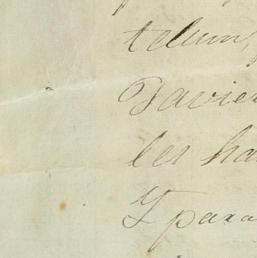 telum,
Davier
les ha
Y para